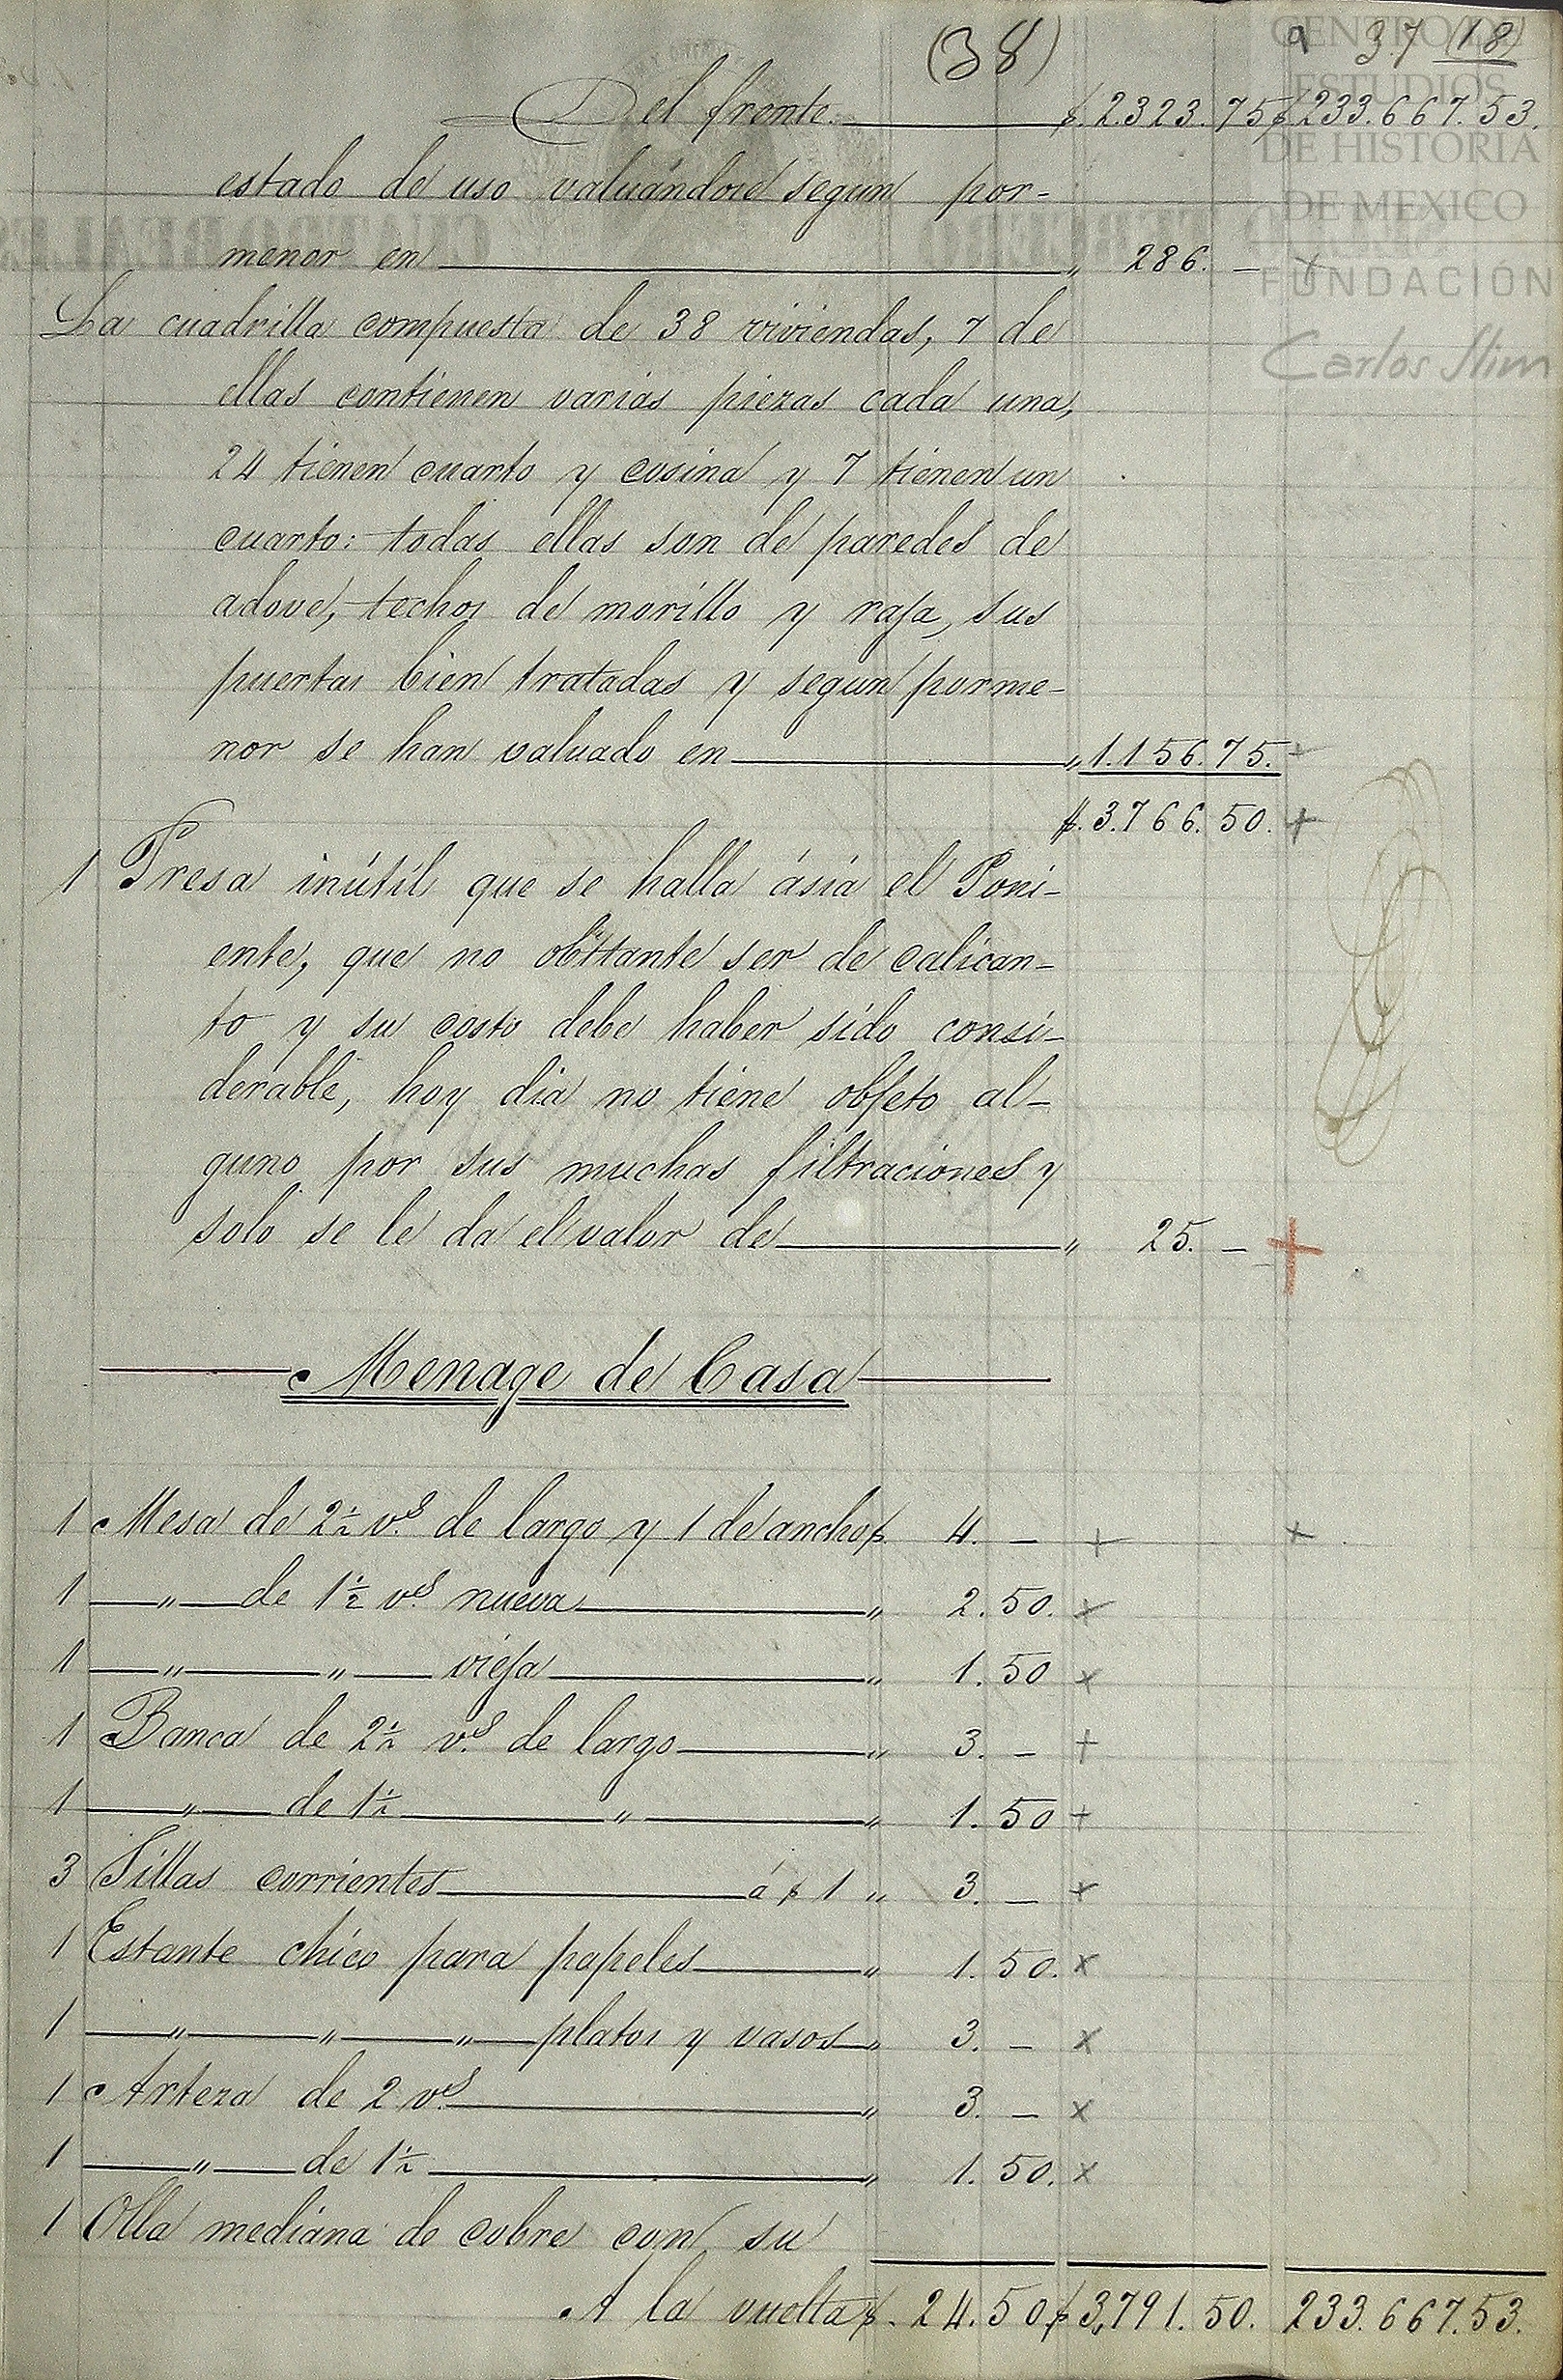 (38) 37 (18)
Del frente. $.2.323.75 $233.667.53.
estado de uso valuándose segun por-
menor en " 286. —
La cuadrilla compuesta de 38 viviendas, 7 de
ellas contienen varias piezas cada una,
24 tienen cuarto y cosina y 7 tienen un
cuarto: todas ellas son de paredes de
adove, techos de morillo y raja, sus
puertas bien tratadas y segun porme-
nor se han valuado en " 1.156.75.
$.3.766.50.
1 Presa inútil que se halla ásia el Poni-
ente, que no obsttante ser de calican-
to y su costo debe haber sido consi-
derable, hoy dia no tiene objeto al-
guno por sus muchas filtraciones y
solo se le da el valor de " 25. —
Menage de Casa
1 Mesa de 2½ v.s de largo y 1 de ancho $. 4. —
1 — " — de 1½ v.s nueva " 2.50.
1 — " — " — vieja " 1.50
1 Banca de 2½ v.s de largo " 3. —
1 — " — de 1½ — " — " 1.50
3 Sillas corrientes á $ 1 " 3. —
1 Estante chico para papeles " 1.50.
1 — " — " — " — platos y vasos " 3. —
1 Arteza de 2 v.s " 3. —
1 — " — de 1½ " 1.50.
1 Olla mediana de cobre con su
A la vuelta $. 24.50 $ 3,791.50. 233.667.53.
CENTRO DE
ESTUDIOS
DE HISTORIA
DE MEXICO
FUNDACIÓN
Carlos Slim